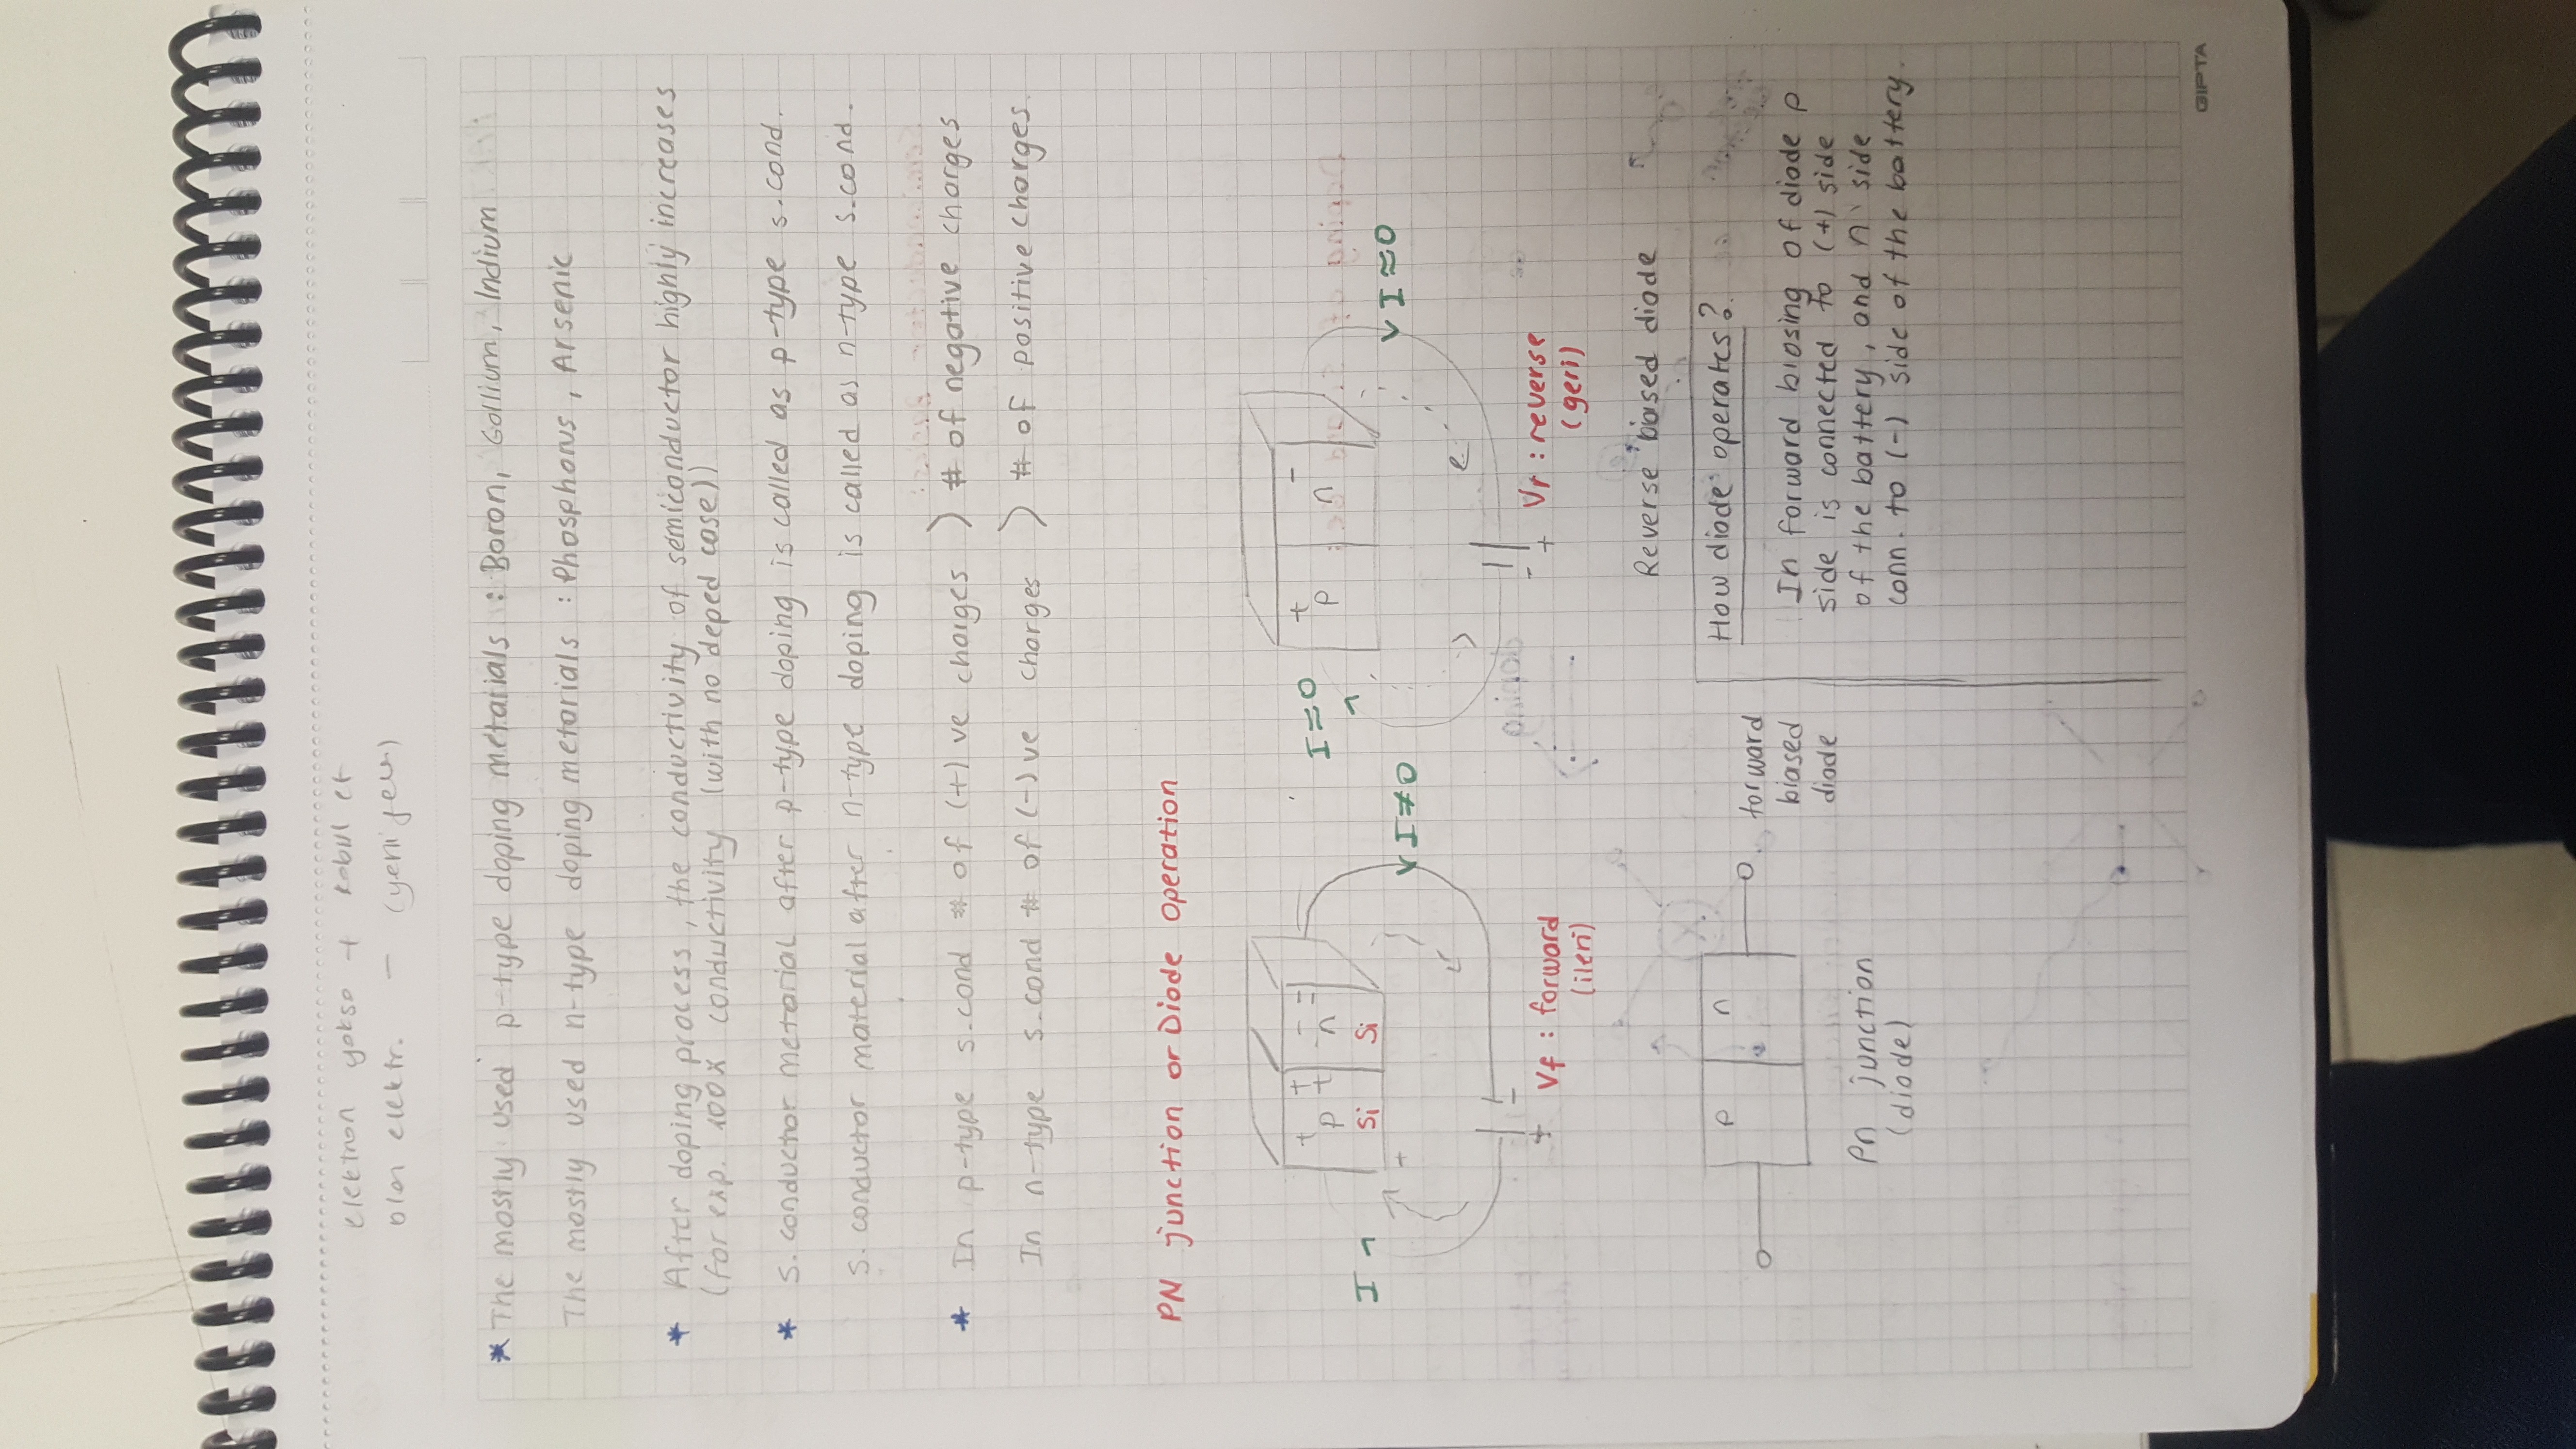 elektron yoksa + kabul et
olan elektr. -
* The mostly used p-type doping metarials : Boron, Gallium, Indium
The mostly used n-type doping metarials : Phosphorus, Arsenic
* After doping process, the conductivity of semiconductor highly increases
(for exp. 100x conductivity (with no deped case))
* s. conductor metarial after p-type doping is called as p-type s.cond.
s. conductor material after n-type doping is called as n-type s.cond.
* In p-type s.cond # of (+) ve charges > # of negative charges
In n-type s.cond # of (-) ve charges > # of positive charges.
PN junction or Diode operation
+ + + - - =
p n
Si Si
I
+
I ≠ 0
+ -
Vf : forward
(ileri)
I ≈ 0
+ -
p n
I ≈ 0
- +
Vr : reverse
(geri)
Reverse biased diode
p n
forward
biased
diode
Pn junction
(diode)
How diode operates?
In forward biasing of diode p
side is connected to (+) side
of the battery, and n side
conn. to (-) side of the battery.
GIPTA